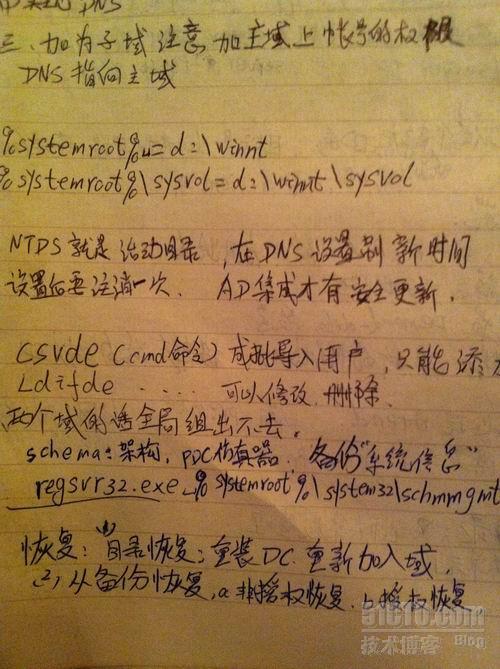 DNS
三、加为子域 注意 加主域上帐号的权限
DNS 指向主域
%systemroot% = d:\winnt
%systemroot%\sysvol = d:\winnt\sysvol
NTDS 就是活动目录,在DNS设置刷新时间
设置后要注消一次、 AD集成才有安全更新.
csvde (cmd命令)成批导入用户,只能添
Ldifde ..... 可以修改.删除.
两个域的 全局组出不去.
schema:架构, PDC仿真器. 备份"系统信息"
regsvr32.exe %systemroot%\system32\schmmgmt
恢复:(1)目录恢复;重装DC.重新加入域.
(2)从备份恢复,a非授权恢复.b授权恢复.
51CTO.com
技术博客 Blog